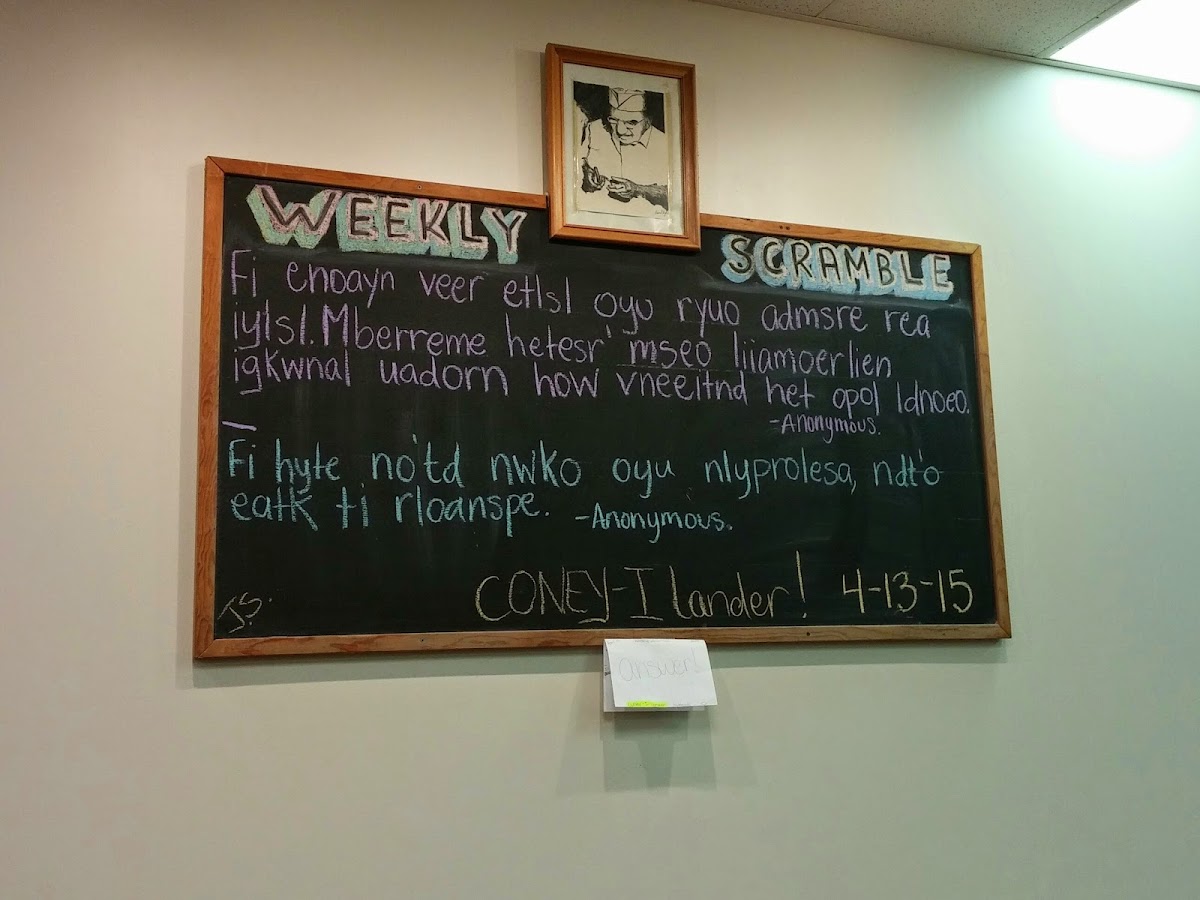 WEEKLY SCRAMBLE
Fi enoayn veer etlsl oyu ryuo admsre rea
iylsl. Mberreme hetesr' mseo liiamoerlien
igkwnal uadorn how vneeitnd het opol ldnoeo.
-Anonymous.
Fi hyte no'td nwko oyu nlyprolesa, ndt'o
eatk ti rloanspe. -Anonymous.
CONEY-Ilander! 4-13-15
J.S.
answer!